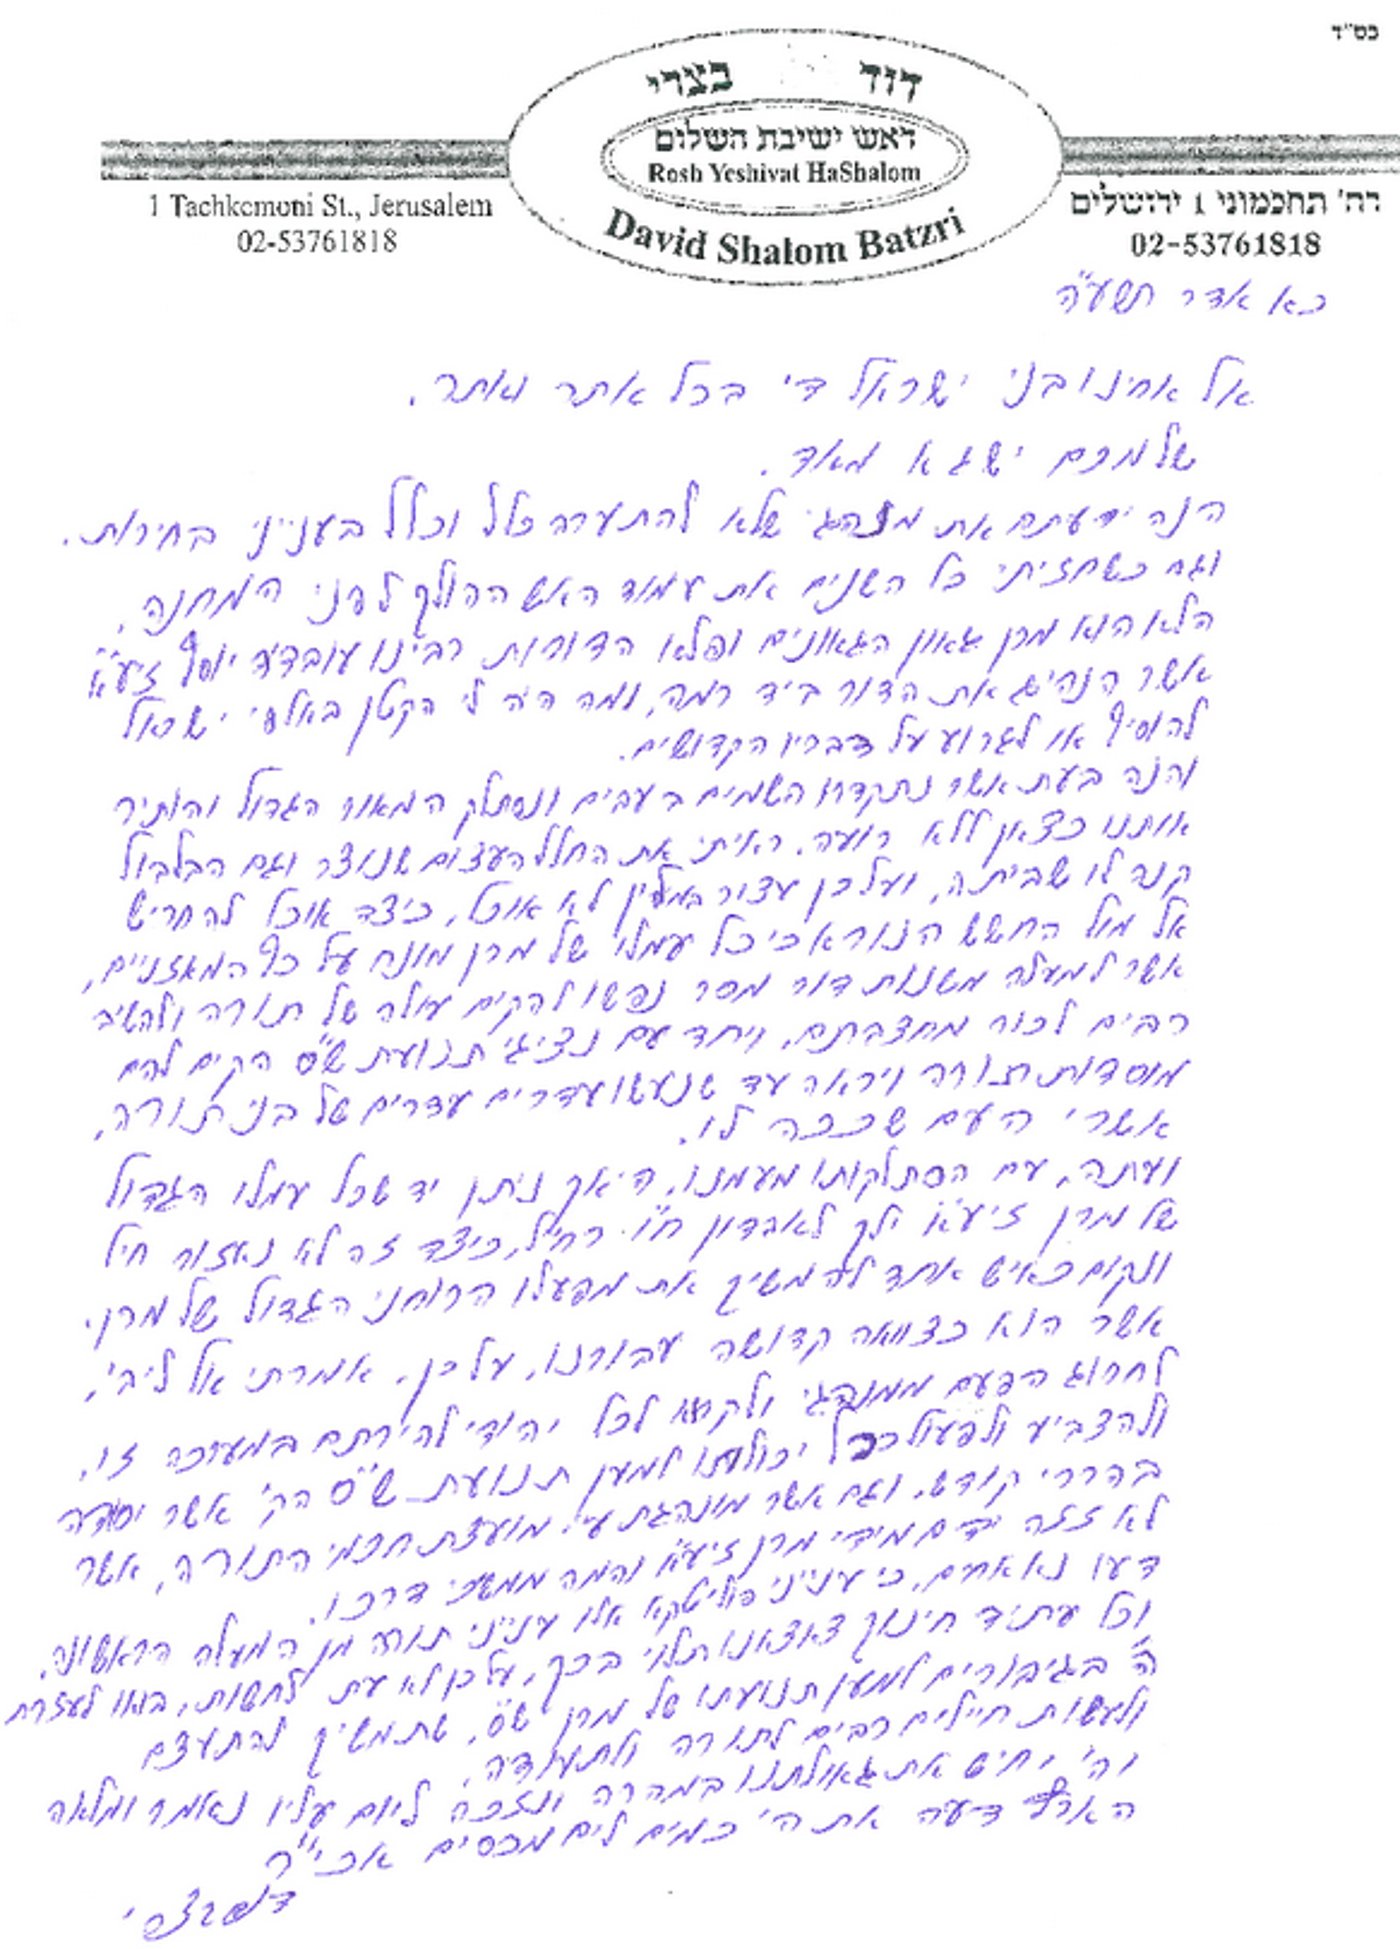 בס"ד
דוד בצרי
ראש ישיבת השלום
Rosh Yeshivat HaShalom
David Shalom Batzri
1 Tachkemoni St., Jerusalem
02-53761818
רח' תחכמוני 1 ירושלים
02-53761818
כא אדר תשע"ה
אל אחינו בני ישראל די בכל אתר ואתר.
שלומכם ישגא מאד.
הנה ידעתם את מנהגי שלא להתערב כלל וכלל בענייני בחירות.
וגם כשחזיתי כל השנים את עמוד האש ההולך לפני המחנה,
הלא הוא מרן גאון הגאונים ופלא הדורות רבינו עובדיה יוסף זיע"א
אשר הנהיג את הדור ביד רמה, ומה היה לי הקטן באלפי ישראל
להוסיף או לגרוע על דבריו הקדושים.
והנה בעת אשר נתקדרו השמים בעבים ונסתלק המאור הגדול והותיר
אותנו כצאן ללא רועה. ראיתי את החלל העצום שנוצר וגם הבלבול
קנה לו שביתה, ועל כן עצור במילין לא אוכל, כיצד אוכל להחריש
אל מול החשש הנורא כי כל עמלי של מרן מונח על כף המאזניים,
אשר למעלה משנות דור מסר נפשו להקים עולה של תורה ולהשיב
רבים לכור מחצבתם, ויחד עם נציגי תנועת ש"ס הקים להם
מוסדות תורה ויראה עד שנעשו עדרים עדרים של בני תורה,
אשרי העם שככה לו.
ועתה, עם הסתלקותו מעמנו, היאך ניתן יד שכל עמלו הגדול
של מרן זיע"א ילך לאבדון ח"ו רח"ל, כיצד זה לא נאזור חיל
ונקום כאיש אחד להמשיך את מפעלו הרוחני הגדול של מרן.
אשר הוא כצוואה קדושה עבורנו, על כן, אמרתי אל ליבי,
לחרוג הפעם ממנהגי ולקרוא לכל יהודי להירתם במערכה זו,
ולהצביע ולפעול ככל יכולתו למען תנועת ש"ס הק' אשר יסודה
בהררי קודש. וגם אשר מונהגת ע"י מועצת חכמי התורה, אשר
לא זזה ידם מידי מרן זיע"א והמה ממשיכי דרכו.
דעו נא אחים, כי ענייני פוליטקא אלו ענייני תורה מן המעלה הראשונה,
וכל עתיד חינוך צאצאנו תלוי בכך, על כן לא עת לחשות, בואו לעזרת
ה' בגיבורים למען תנועתו של מרן ש"ס, שתמשיך להתעצם
ולעשות חיילים רבים לתורה ולתעודה,
וה' יחיש את גאולתנו במהרה ונזכה ליום עליו נאמר ומלאה
הארץ דעה את ה' כמים לים מכסים אכי"ר